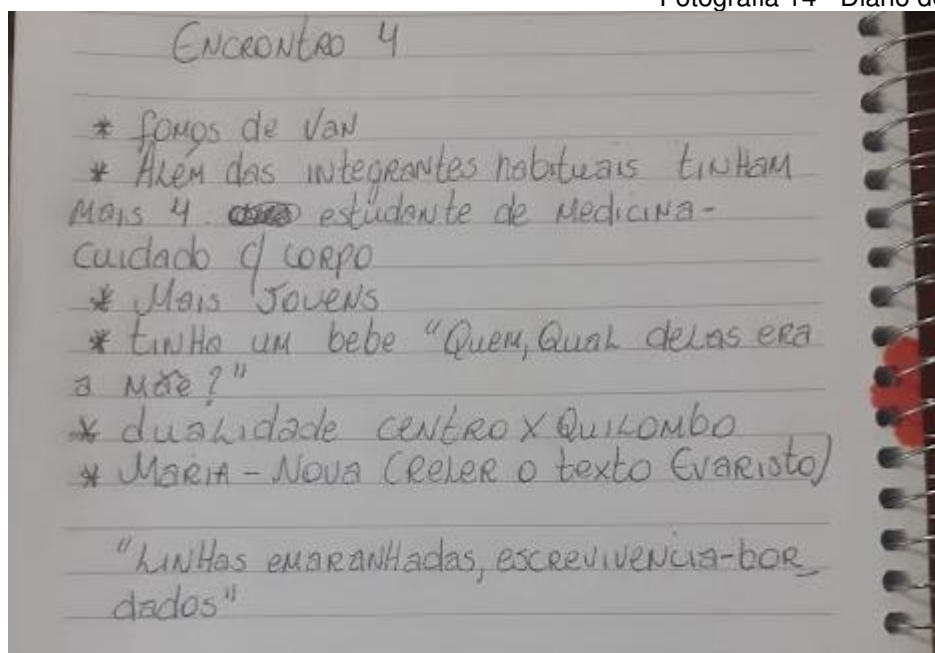 Fotografia 14 - Diário de
ENCRONTRO 4
* fomos de VAN
* Além das integrantes habituais tinham
mais 4. estudante de medicina-
cuidado c/ corpo
* Mais Jovens
* tinha um bebe "Quem, Qual delas era
a mãe?"
* dualidade centro X Quilombo
* Maria - Nova (Reler o texto Evaristo)
"Linhas emaranhadas, escrevivencia-bor_
dados"